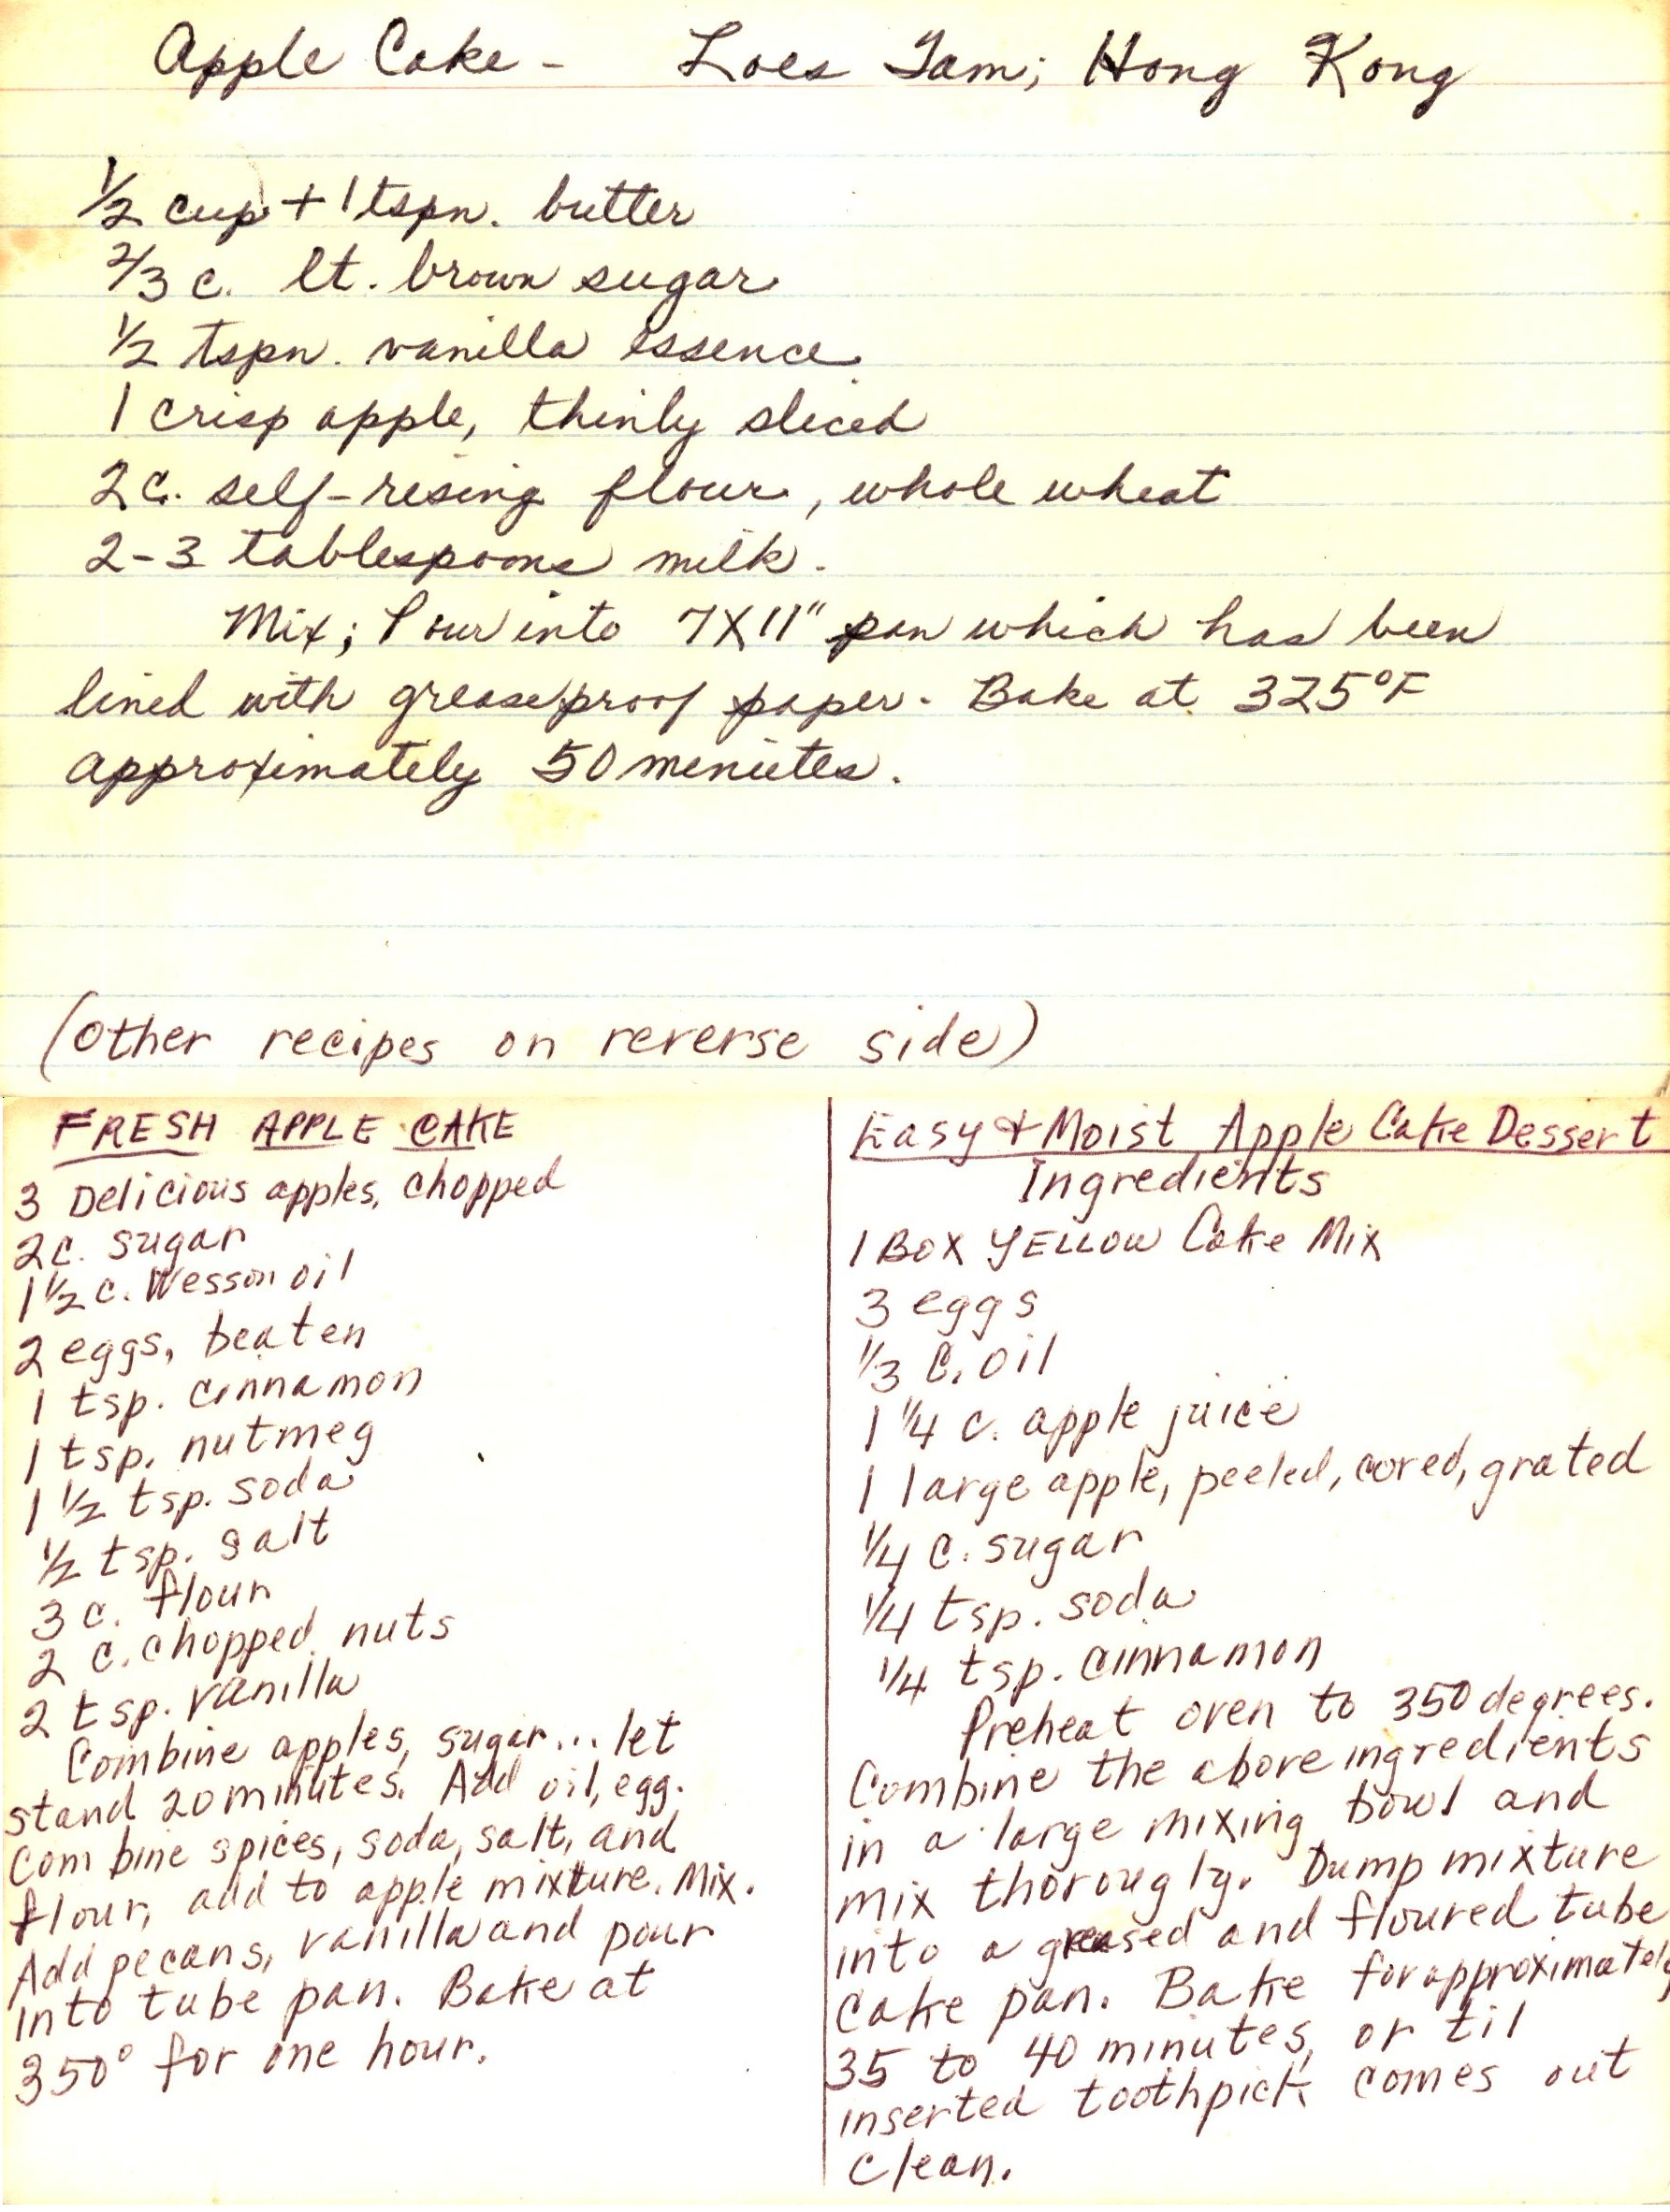 Apple Cake - Loes Tam; Hong Kong
1/2 cup + 1 tspn. butter
2/3 c. lt. brown sugar
1/2 tspn. vanilla essence
1 crisp apple, thinly sliced
2 c. self-rising flour, whole wheat
2-3 tablespoons milk.
Mix; Pour into 7X11" pan which has been
lined with greaseproof paper. Bake at 325°F
approximately 50 minutes.
(other recipes on reverse side)
FRESH APPLE CAKE
3 Delicious apples, chopped
2 c. sugar
1 1/2 c. Wesson oil
2 eggs, beaten
1 tsp. cinnamon
1 tsp. nutmeg
1 1/2 tsp. soda
1/2 tsp. salt
3 c. flour
2 c. chopped nuts
2 tsp. vanilla
Combine apples, sugar... let
stand 20 minutes. Add oil, egg.
Combine spices, soda, salt, and
flour, add to apple mixture. Mix.
Add pecans, vanilla and pour
into tube pan. Bake at
350° for one hour.
Easy & Moist Apple Cake Dessert
Ingredients
1 BOX YELLOW Cake Mix
3 eggs
1/3 C. oil
1 1/4 c. apple juice
1 large apple, peeled, cored, grated
1/4 c. sugar
1/4 tsp. soda
1/4 tsp. cinnamon
Preheat oven to 350 degrees.
Combine the above ingredients
in a large mixing bowl and
mix thorougly. Dump mixture
into a greased and floured tube
cake pan. Bake for approximately
35 to 40 minutes, or til
inserted toothpick comes out
clean.